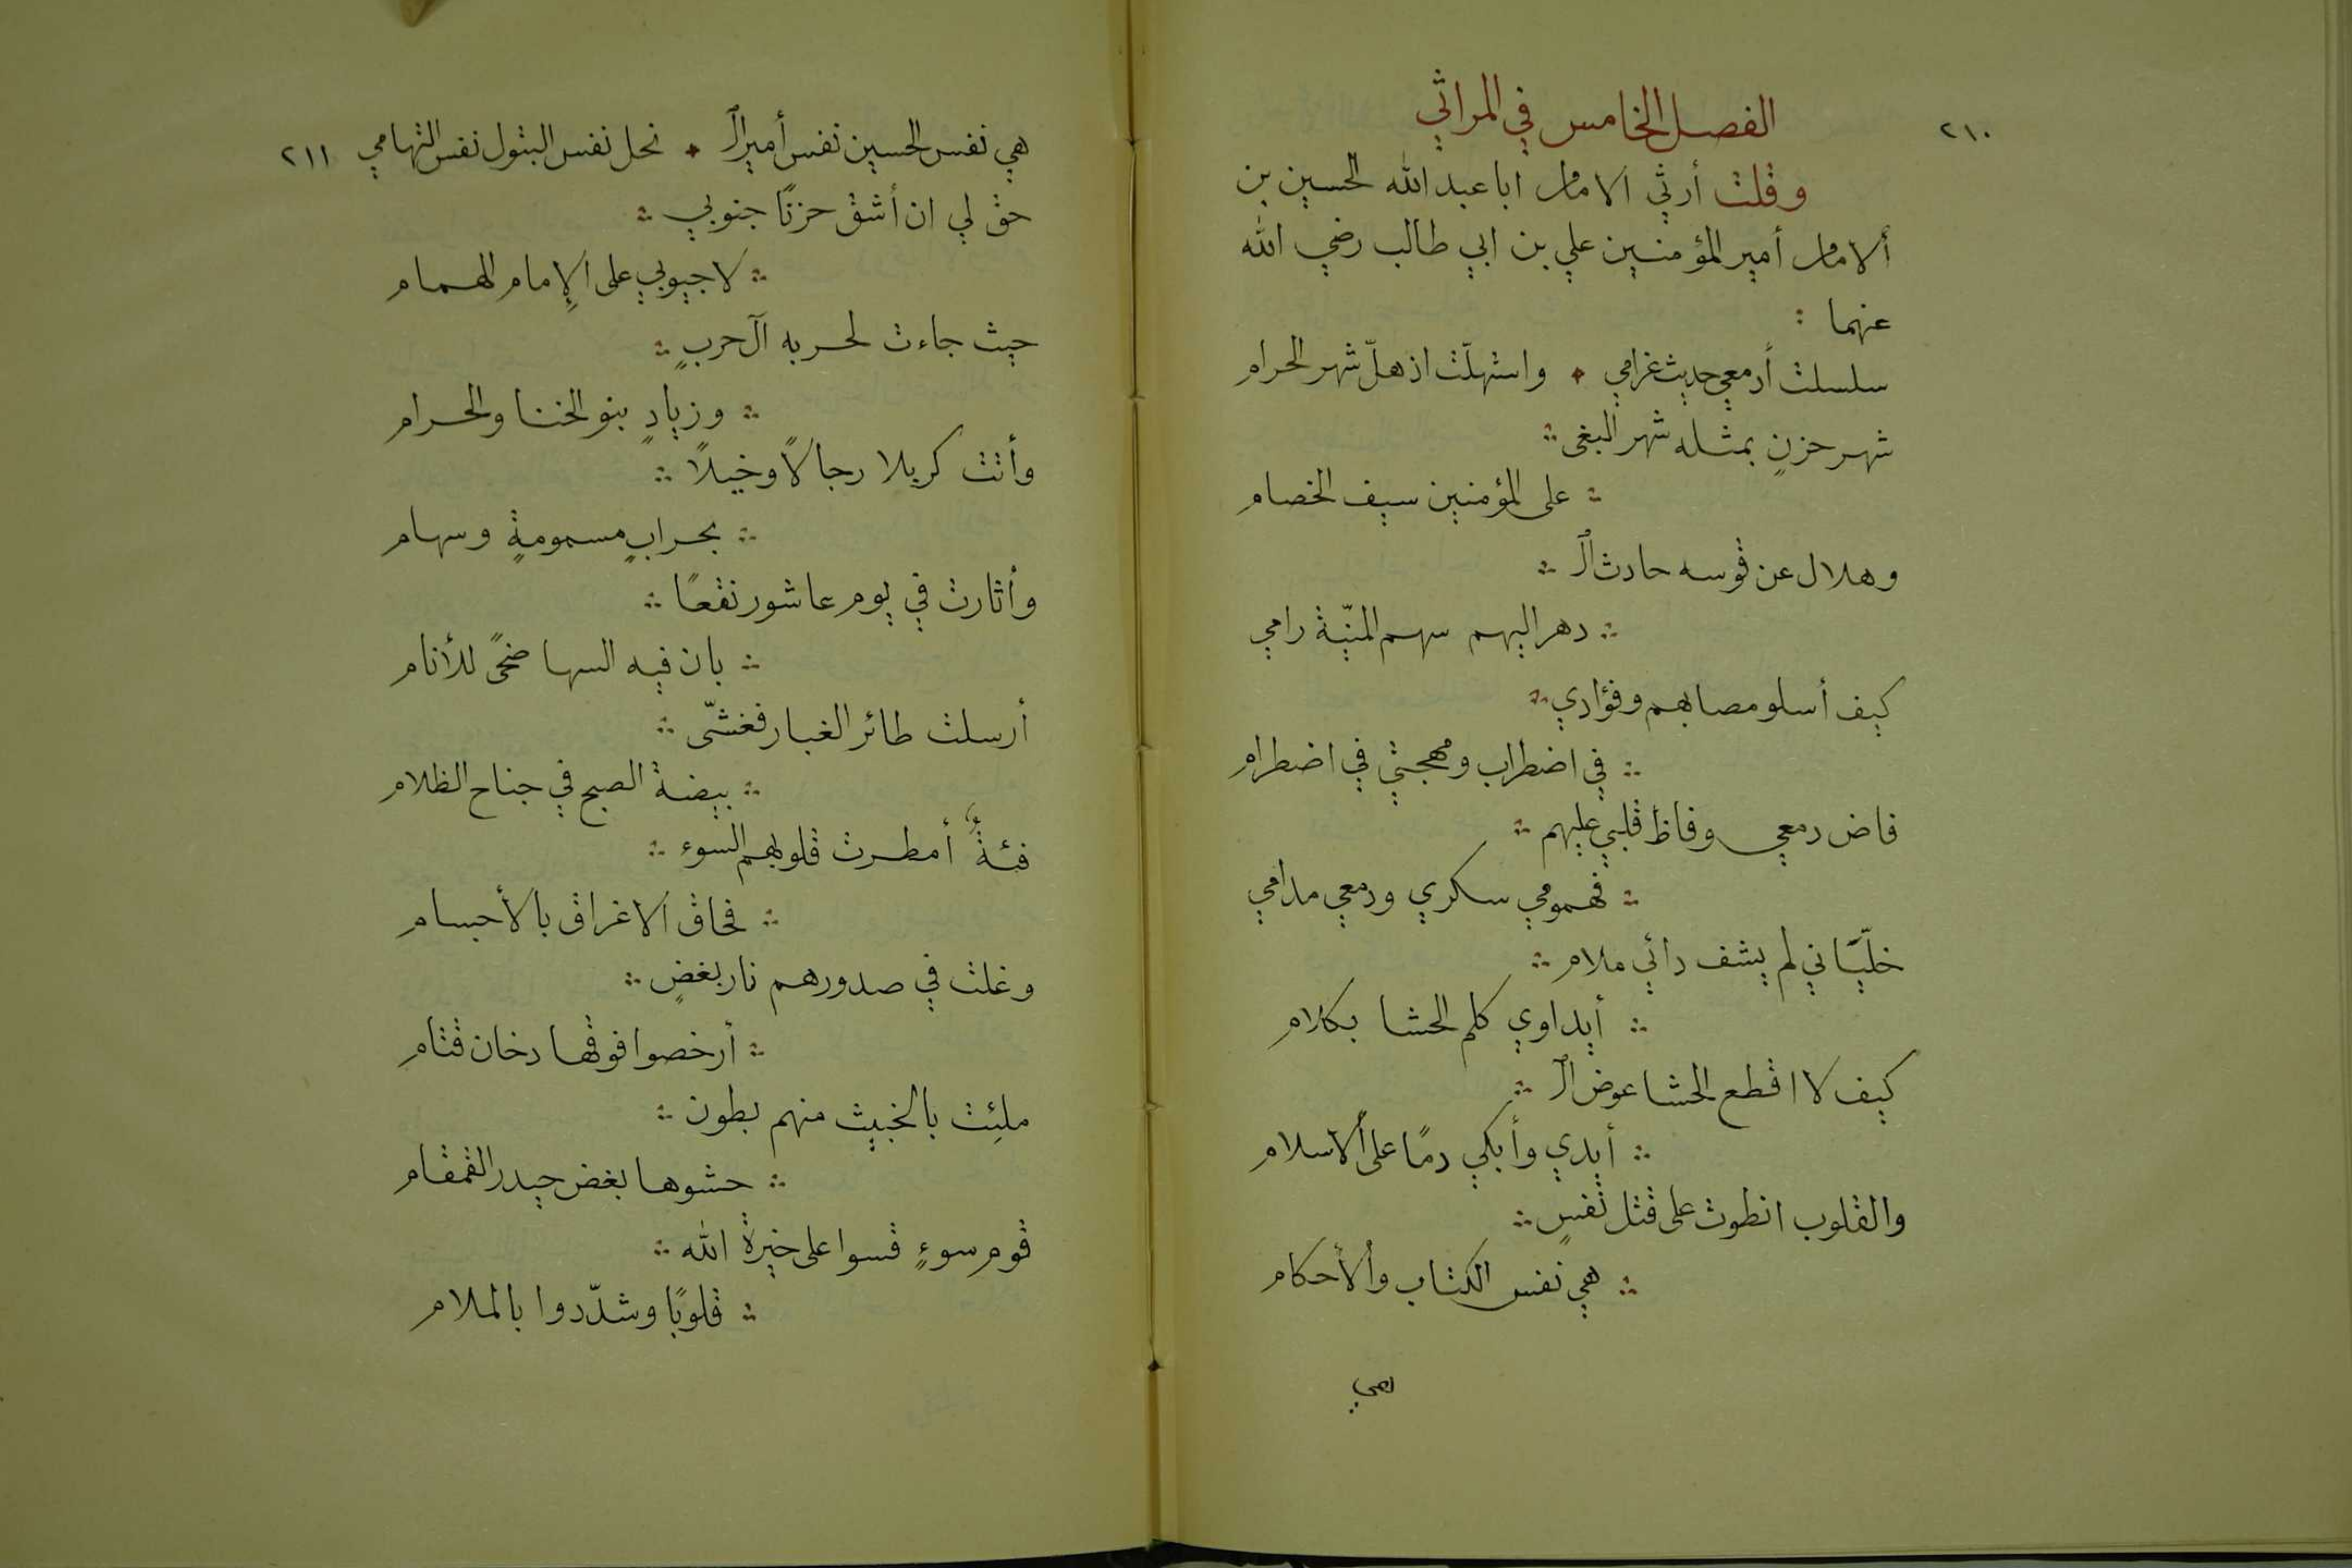 ٢١٠
الفصل الخامس في المراثي
وقلت أرثي الامام ابا عبد الله الحسين بن
ألامام أمير المؤمنين علي بن ابي طالب رضي الله
عنهما :
سلسلت أدمعي حديث غرامي * واستهلّت اذ هلّ شهر الحرام
شهر حزنٍ بمثله شهر البغى ∴
∴ على المؤمنين سيف الخصام
وهلال عن قوسه حادث الـ ∴
∴ دهر اليهم سهم المنيّة رامي
كيف أسلو مصابهم وفؤادي ∴
∴ في اضطراب ومهجتي في اضطرام
فاض دمعي وفاظ قلبي عليهم ∴
∴ فهمومي سكري ودمعي مدامي
خلّياني لم يشف دائي ملام ∴
∴ أيداوي كلم الحشا بكلام
كيف لا اقطع الحشا عوض الـ ∴
∴ أيدي وأبكي دمًا على ألاسلام
والقلوب انطوت على قتل نفسٍ ∴
∴ هي نفس الكتاب والأحكام
هي
هي نفس الحسين نفس أمير الـ * نحل نفس البتول نفس التهامي ٢١١
حق لي ان أشق حزنًا جنوبي ∴
∴ لا جيوبي على الإمام الهمام
حيث جاءت لحربه آل حربٍ ∴
∴ وزيادٍ بنو الخنا والحرام
وأتت كربلا رجالاً وخيلاً ∴
∴ بحرابٍ مسمومةٍ وسهام
وأثارت في يوم عاشور نقعًا ∴
∴ بان فيه السها ضحىً للأنام
أرسلت طائر الغبار فغشّى ∴
∴ بيضة الصبح في جناح الظلام
فئةٌ أمطرت قلوبهم السوء ∴
∴ فحاق الاغراق بالأجسام
وغلت في صدورهم نار بغضٍ ∴
∴ أرخصوا فوقها دخان قتام
ملئِت بالخبيث منهم بطون ∴
∴ حشوها بغض حيدر القمقام
قوم سوءٍ قسوا على خيرة الله ∴
∴ قلوبًا وشدّدوا بالملام